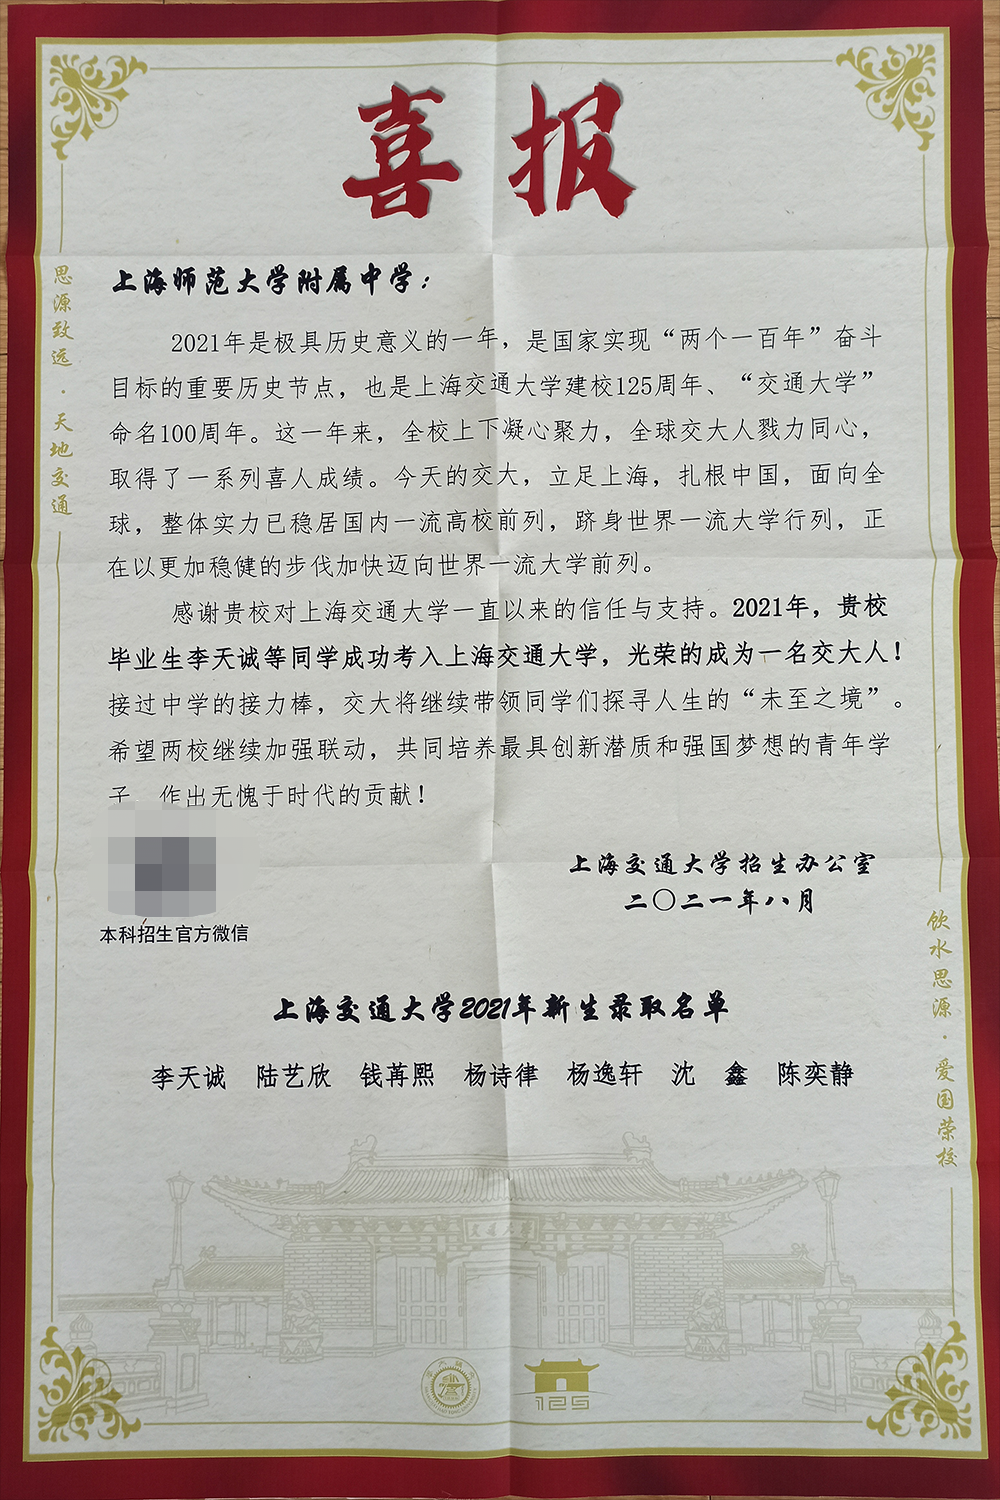 喜报
思源致远·天地交通
上海师范大学附属中学：
2021年是极具历史意义的一年，是国家实现“两个一百年”奋斗
目标的重要历史节点，也是上海交通大学建校125周年、“交通大学”
命名100周年。这一年来，全校上下凝心聚力，全球交大人戮力同心，
取得了一系列喜人成绩。今天的交大，立足上海，扎根中国，面向全
球，整体实力已稳居国内一流高校前列，跻身世界一流大学行列，正
在以更加稳健的步伐加快迈向世界一流大学前列。
感谢贵校对上海交通大学一直以来的信任与支持。2021年，贵校
毕业生李天诚等同学成功考入上海交通大学，光荣的成为一名交大人！
接过中学的接力棒，交大将继续带领同学们探寻人生的“未至之境”。
希望两校继续加强联动，共同培养最具创新潜质和强国梦想的青年学
子，作出无愧于时代的贡献！
上海交通大学招生办公室
二〇二一年八月
本科招生官方微信
饮水思源·爱国荣校
上海交通大学2021年新生录取名单
李天诚 陆艺欣 钱苒熙 杨诗律 杨逸轩 沈 鑫 陈奕静
交通大学
125